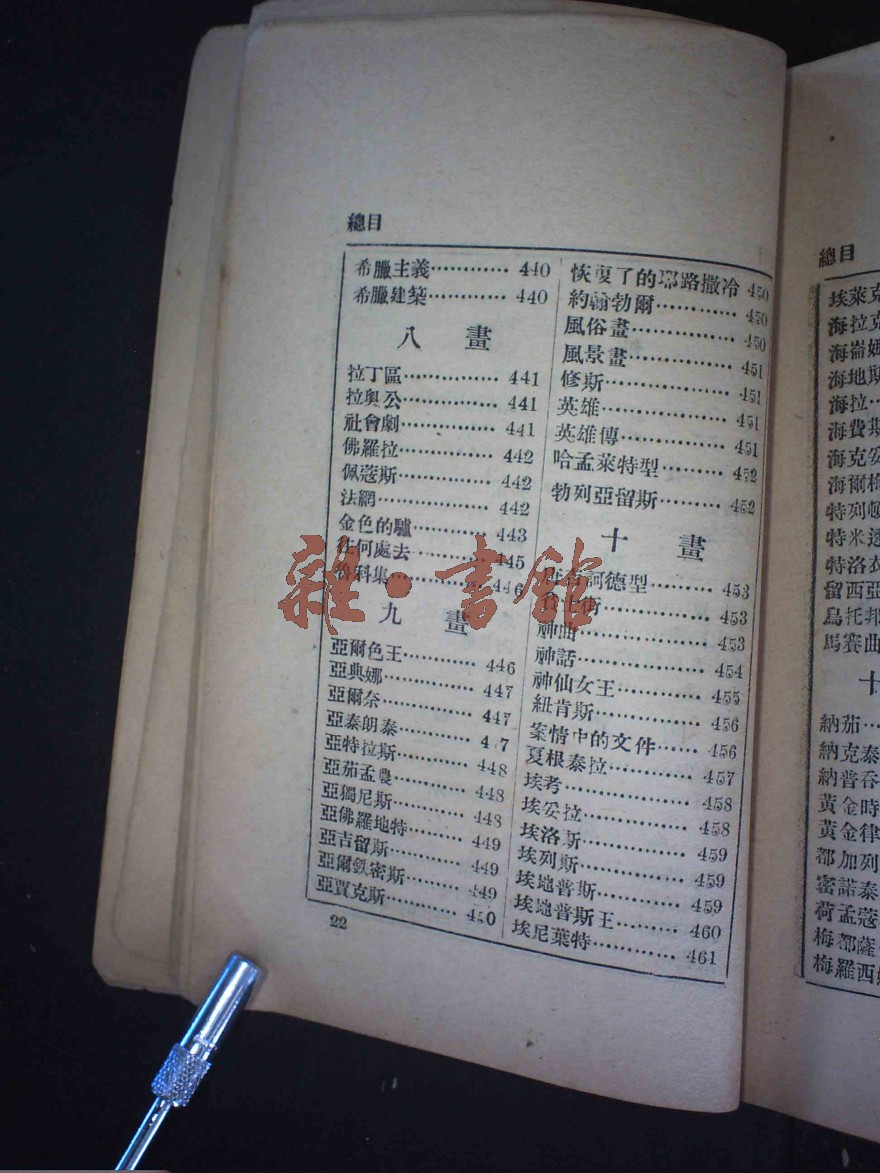 總目
希臘主義………… 440
希臘建築………… 440
八 畫
拉丁區…………… 441
拉奧公…………… 441
社會劇…………… 441
佛羅拉…………… 442
佩蔻斯…………… 442
法網……………… 442
金色的驢………… 443
往何處去………… 445
446
九 畫
亞爾色王………… 446
亞典娜…………… 447
亞爾奈…………… 447
亞泰朗泰………… 4 7
亞特拉斯………… 448
亞茄孟農………… 448
亞獨尼斯………… 448
亞佛羅地特……… 449
亞吉留斯………… 449
亞爾鉄密斯……… 449
亞賈克斯………… 450
22
恢復了的耶路撒冷 450
約翰勃爾………… 450
風俗畫…………… 450
風景畫…………… 451
修斯……………… 451
英雄……………… 451
英雄傳…………… 451
哈孟萊特型……… 452
勃列亞留斯……… 452
十 畫
訶德型……… 453
街…………… 453
神曲……………… 453
神話……………… 454
神仙女王………… 455
紐肯斯…………… 456
案情中的文件…… 456
夏根泰拉………… 457
埃考……………… 458
埃妥拉…………… 458
埃洛斯…………… 459
埃列斯…………… 459
埃地普斯………… 459
埃地普斯王……… 460
埃尼葉特………… 461
總目
埃萊克
海拉克
海崙
海地斯
海拉…
海費斯
海克妥
海爾梅
特列頓
特米透
特洛衣
留西亞
烏托邦
馬賽曲
十
納茄…
納克泰
納普吞
黃金時
黃金律
都加列
密諾泰
荷孟蔻
梅都薩
梅羅西
雜·書館